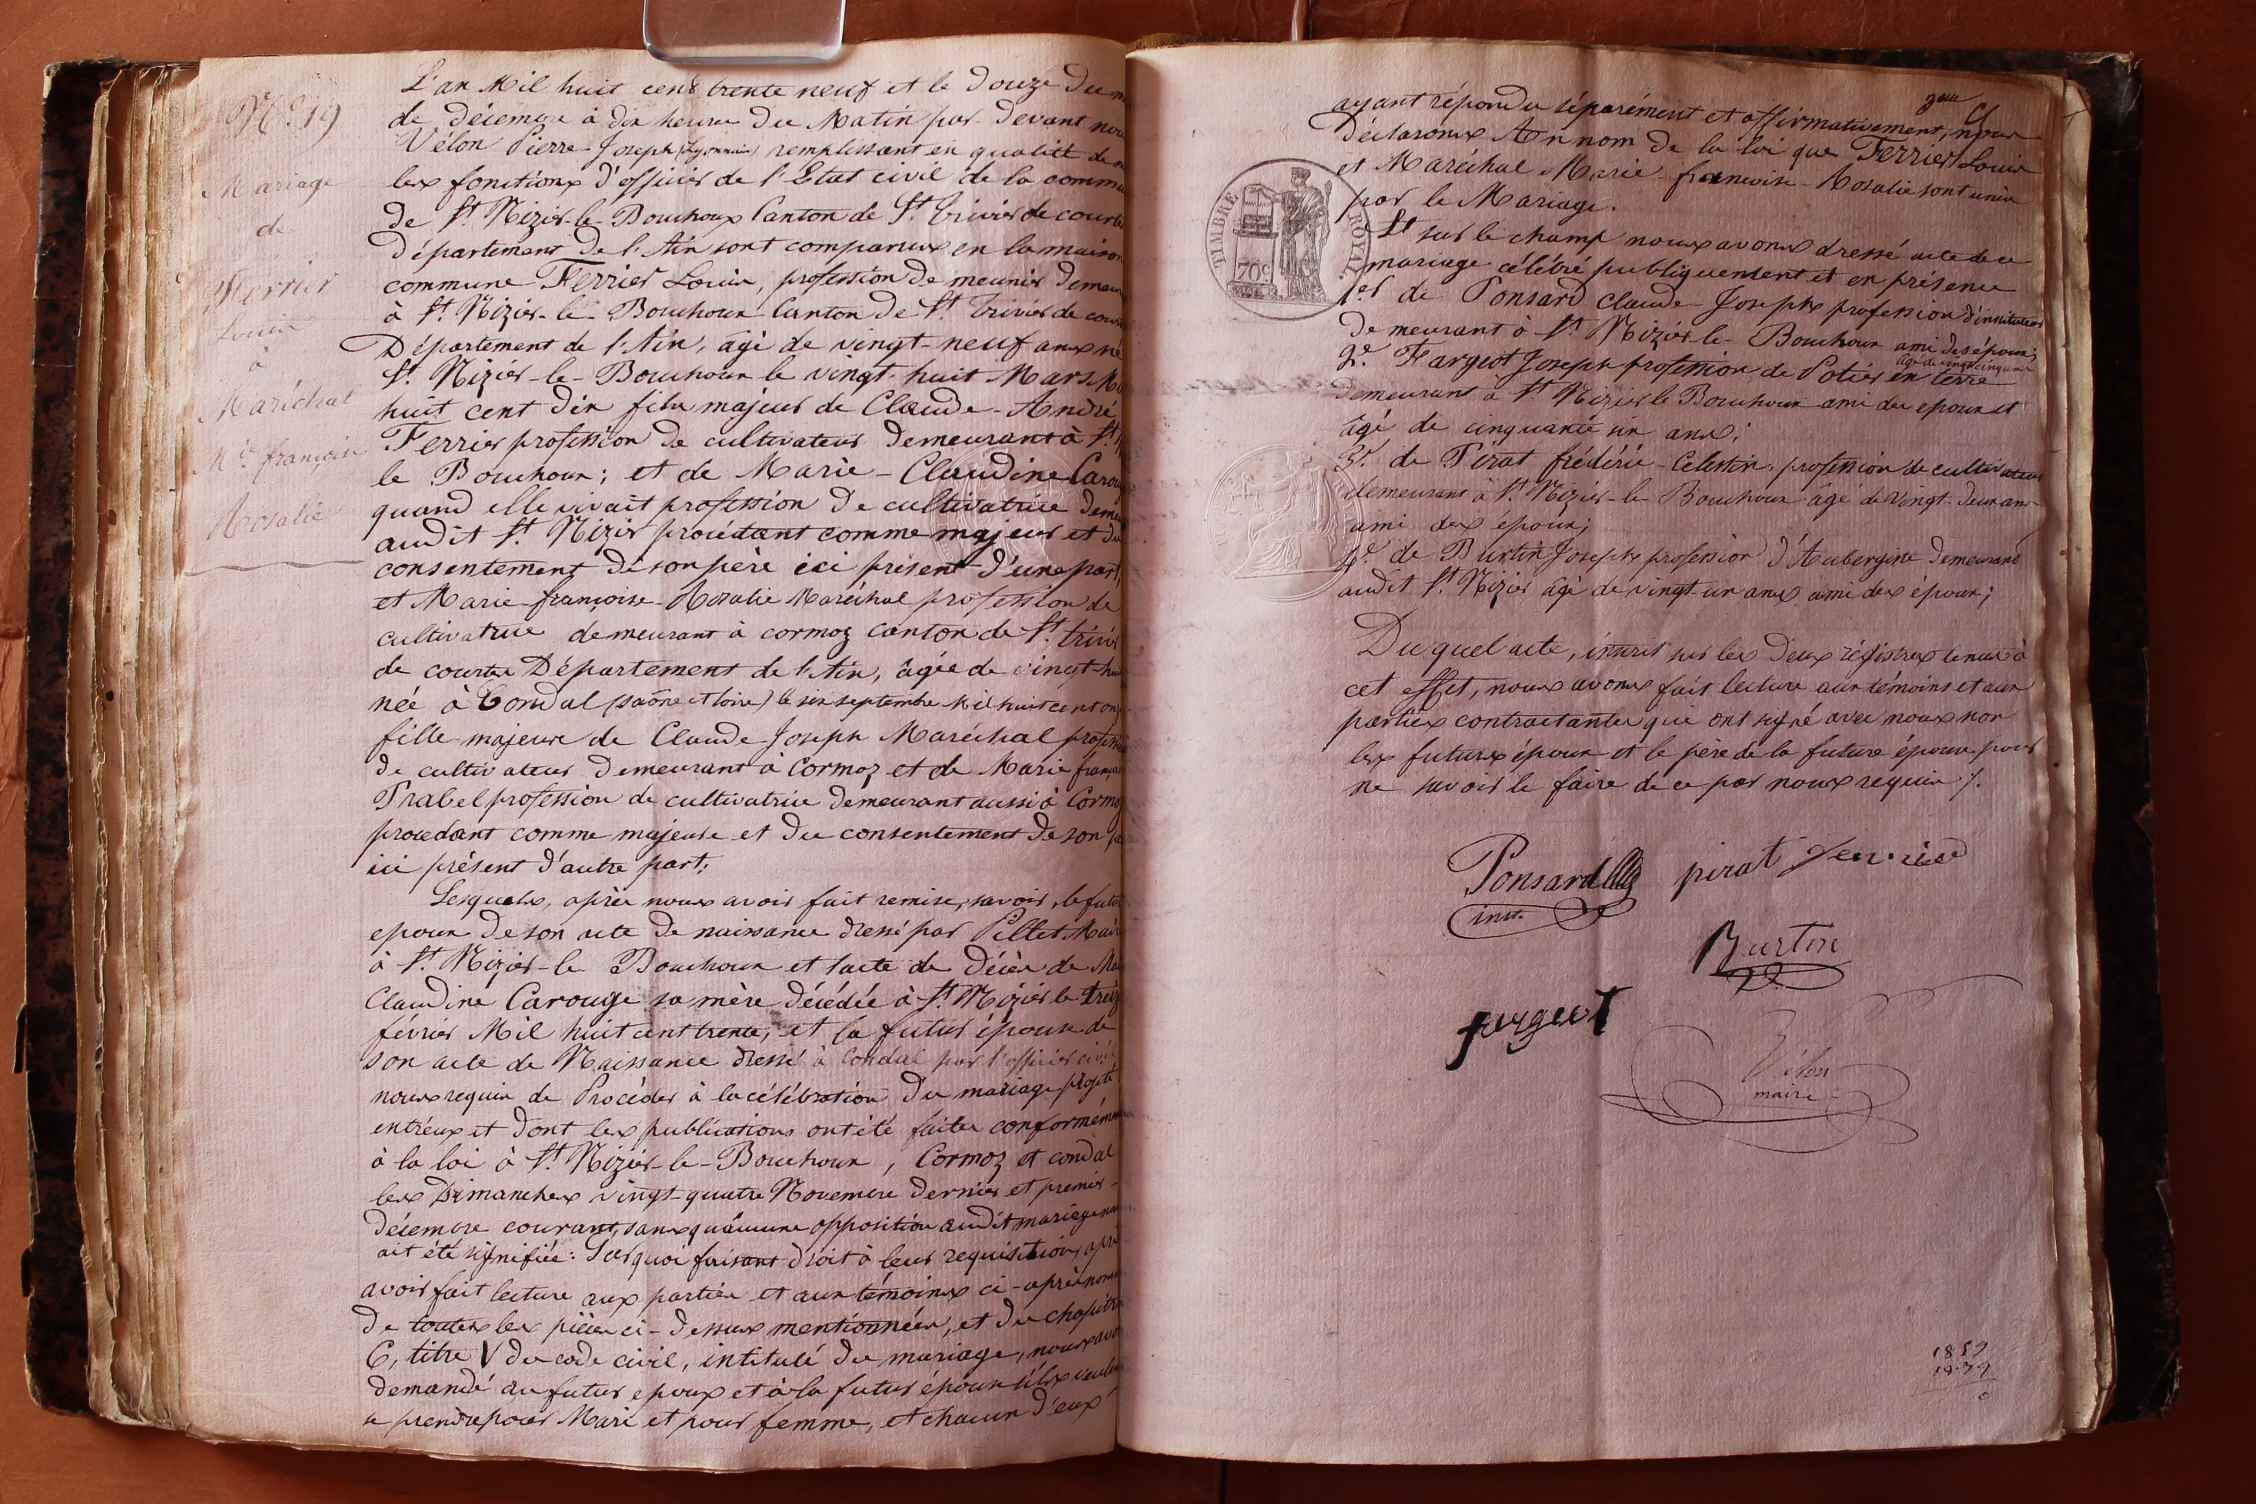 N.º 19
Mariage
de
Ferrier
Louis
à
Maréchal
M.ie françoise
Rosalie
L'an Mil huit cent trente neuf et le Douze Du
de décembre à dix heures Du Matin par devant nous
Vélon Pierre-Joseph remplissant en qualité de
les fonctions d'officier de l'Etat civil de la commu
de St. Nizier-le-Bouchoux Canton de St. Trivier de courtes
Département De l'Ain sont comparus en la maison
commune Ferrier Louis, profession de meunier demeu
à St. Nizier-le-Bouchoux Canton de St. Trivier de cour
Département de l'Ain, âgé de vingt-neuf ans né
St. Nizier-le-Bouchoux le vingt-huit Mars Mil
huit cent dix fils majeur de Claude-André
Ferrier profession de cultivateur demeurant à St. N
le Bouchoux; et de Marie-Claudine Carou
quand elle vivait profession De cultivatrice deme
audit St. Nizier procédant comme majeur et du
consentement de son père ici présent d'une part,
et Marie-françoise-Rosalie Maréchal profession de
cultivatrice demeurant à cormoz canton de St. trivier
de courtes Département de l'Ain, âgée de vingt-hu
née à Condal (saône et loire) le six septembre Mil huit cent on
fille majeure de Claude Joseph Maréchal profess
de cultivateur Demeurant à Cormoz et de Marie françoi
Prabel profession de cultivatrice demeurant aussi à Cormoz
procedant comme majeure et Du consentement de son pè
ici présent d'autre part.
Lesquels, après nous avoir fait remise, savoir, le futur
epoux de son acte de naissance dressé par Pillet Maire
à St. Nizier-le Bouchoux et l'acte de Décès de Ma
Claudine Carouge sa mère décédée à St. Nizier le treiz
février Mil huit cent trente; et la futur épouse de
son acte de Naissance dressé à Condal par l'officier civil
nous requis de Procéder à la célébration Du mariage projeté
entr'eux et dont les publications ont été faites conformém
à la loi à St. Nizier-le-Bouchoux, Cormoz et condal
les Dimanches vingt-quatre Novembre dernier et premier
décembre courant, sans qu'aucune opposition audit mariage nou
ait été signifiée: Sur quoi faisant droit à leur requisition, aprè
avoir fait lecture aux parties et aux témoins ci-après nom
De toutes les pièces ci-dessus mentionnées, et du chapitre
6, titre V du code civil, intitulé du mariage, nous avon
demandé au futur epoux et à la futur épouse s'ils veulen
se prendre pour Mari et pour femme, et chacun d'eux
ayant répondu séparément et affirmativement, nous
Déclarons Au nom de la loi que Ferrier Louis
et Maréchal Marie-francoise-Rosalie sont unis
par le Mariage.
TIMBRE ROYAL
70 c
Et sur le champ nous avons dressé acte de ce
mariage célébré publiquement et en présence
1er de Ponsard claude-Joseph profession d'instituteur
demeurant à St. Nizier-le-Bouchoux ami des époux;
âgé de vingt cinq ans
2e. Fargeot Joseph profession de Potier en terre
Demeurant à St. Nizier le Bouchoux ami des epoux et
âgé de cinquante un ans;
3e. de Pirat frédéric-Célestin, profession de cultivateur
demeurant à St. Nizier-le-Bouchoux âgé de vingt-deux ans
ami des époux;
4e. de Burtin Joseph profession d'Aubergiste demeurant
audit St. Nizier âgé de vingt-un ans ami des époux;
Duquel acte, inscrit sur les deux régistres tenus à
cet effet, nous avons fait lecture aux témoins et aux
parties contractantes qui ont signé avec nous non
les futurs époux et le père de la future épouse pour
ne savoir le faire de ce par nous requis /.
Ponsard
inst.
pirat
Burtin
fargeot
Vélon
maire
1839